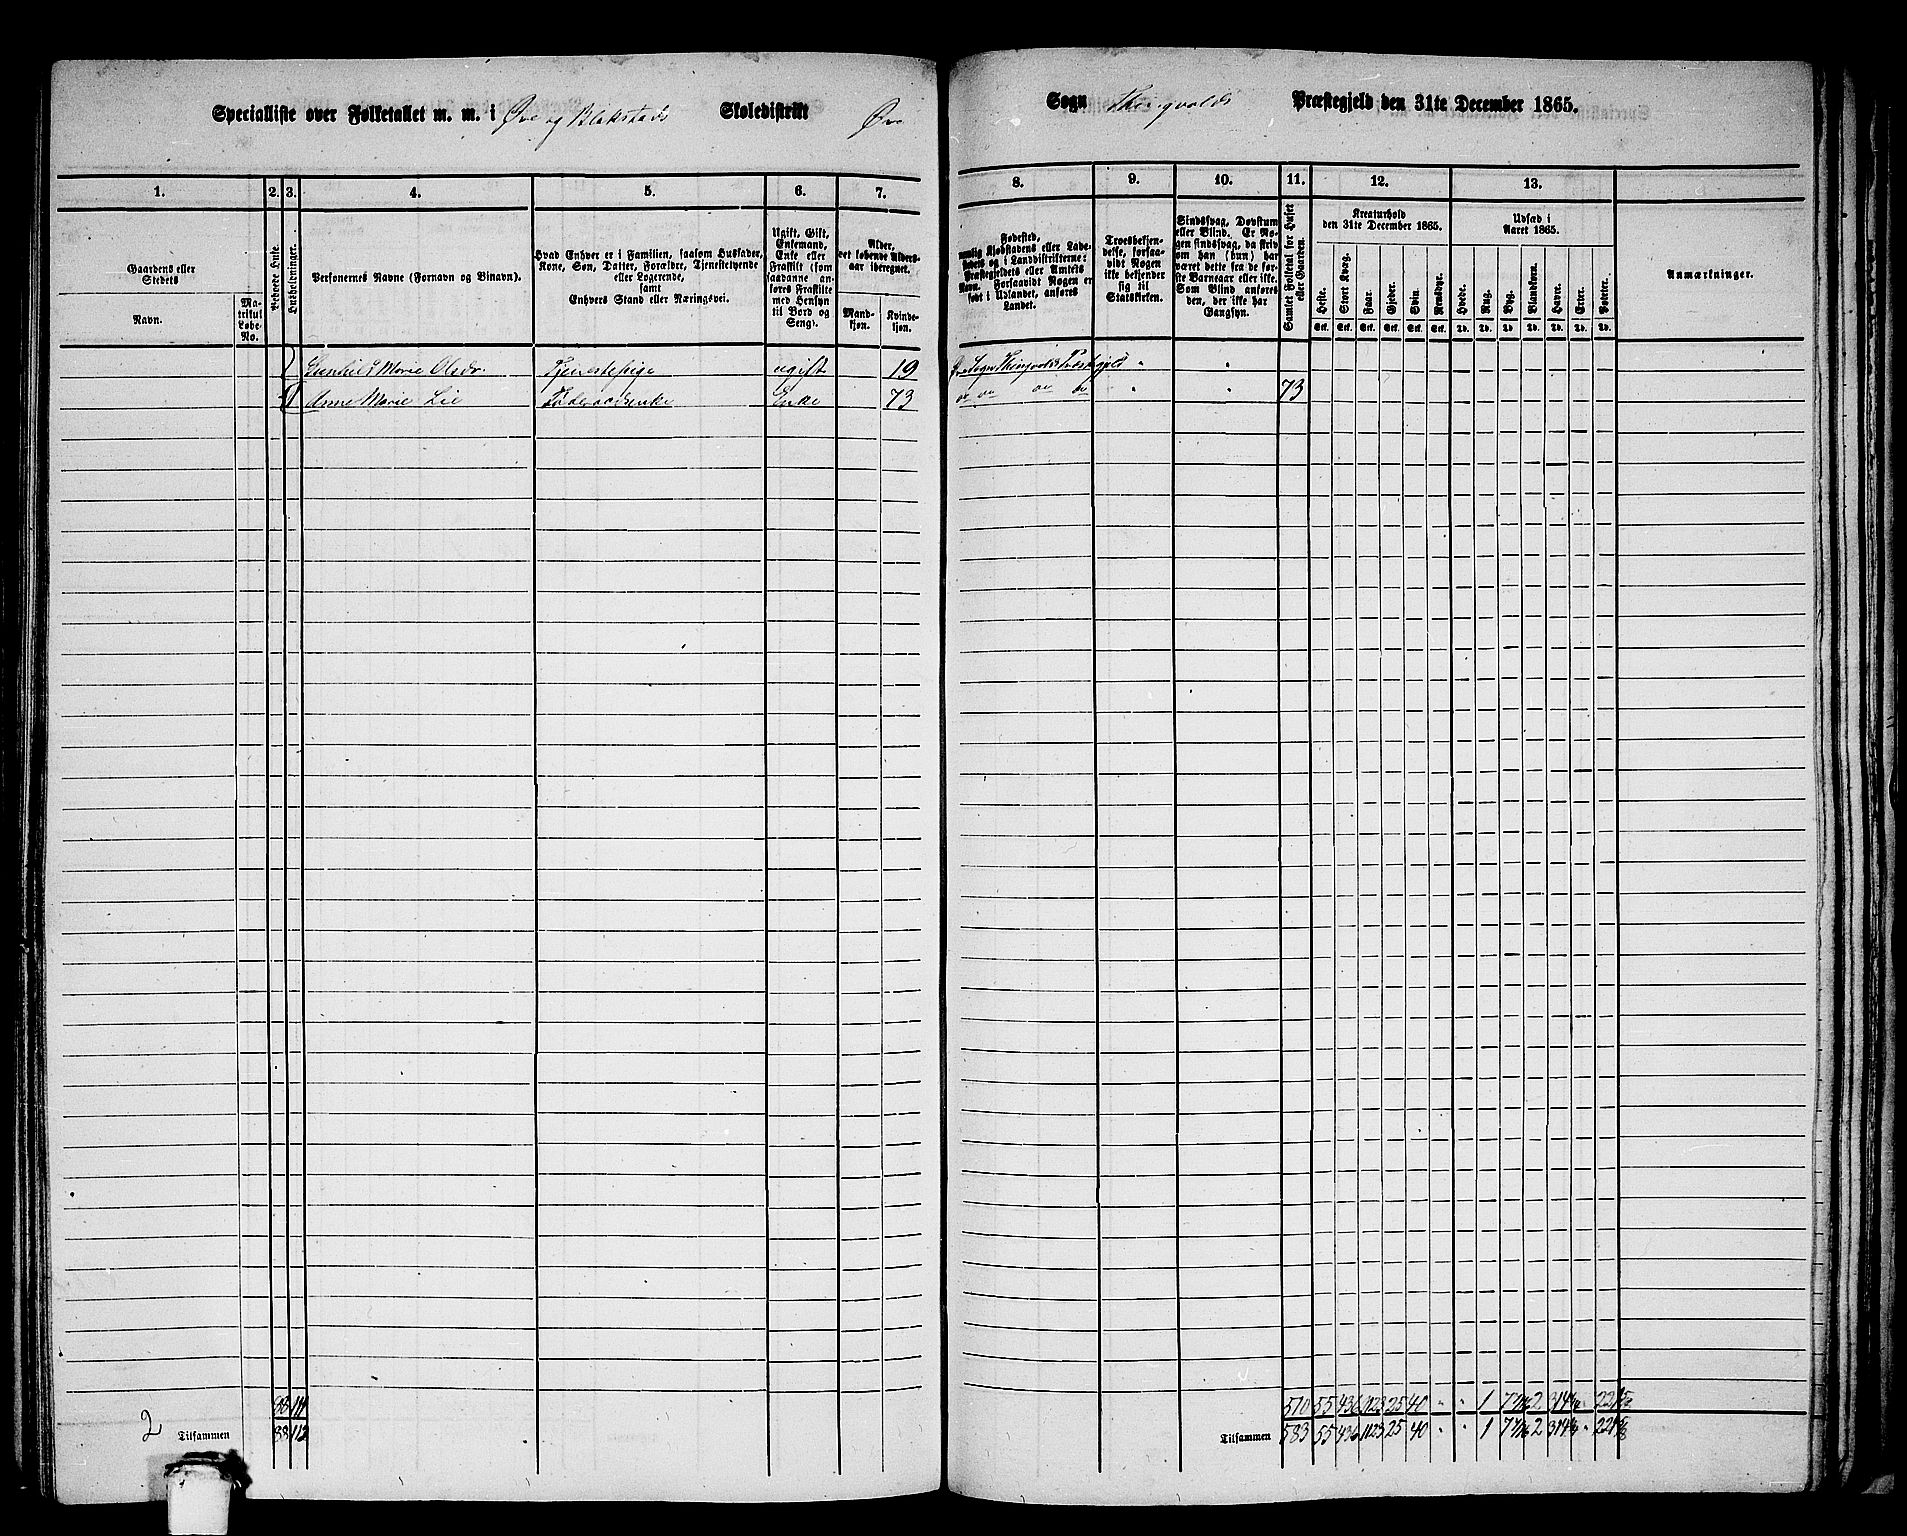 Specialliste over Folketallet m. m. i Øve og Blakstads Skoledistrikt Øve
Sogn Thingvolds Præstegjeld den 31te December 1865.
1. 2. 3. 4. 5. 6. 7. 8. 9. 10. 11. 12. 13.
Gaardens eller Stedets
Navn.
Matrikul Løbe-No.
Beboede Huse.
Husholdninger.
Personernes Navne (Fornavn og Binavn).
Hvad Enhver er i Familien, saasom Husfader, Kone, Søn, Datter, Forældre, Tjenestetyende eller Logerende,
samt
Enhvers Stand eller Næringsvei.
Ugift, Gift, Enkemand, Enke eller Fraskilt (som saadanne anføres Fraskilte med Hensyn til Bord og Seng).
Alder, det løbende Aldersaar iberegnet.
Mandkjøn.
Kvindekjøn.
Fødested, nemlig Kjøbstadens eller Ladestedets og i Landdistrikterne: Præstegjeldets eller Amtets Navn. Forsaavidt Nogen er født i Udlandet, anføres Landet.
Troesbekjendelse, forsaavidt Nogen ikke bekjender sig til Statskirken.
Sindssvag, Døvstum eller Blind. Er Nogen sindssvag, da skrives om han (hun) har været dette fra de første Barneaar eller ikke. Som Blind anføres den, der ikke har Gangsyn.
Samlet Folketal for Huset eller Gaarden.
Kreaturhold den 31te December 1865.
Heste. Stort Kvæg. Faar. Gjeder. Svin. Rensdyr.
Stk. Stk. Stk. Stk. Stk. Stk.
Udsæd i Aaret 1865.
Hvede. Rug. Byg. Blandkorn. Havre. Erter. Poteter.
Td. Td. Td. Td. Td. Td. Td.
Anmærkninger.
Gunhild Marie Olsdr. Tjenestepige ugift 19 Sogn Præstegjeld " "
1 Anne Marie Lie Føderaadsenke Enke 73 " " 73
88 111 510 55 436 1123 25 40 " " 1
2 Tilsammen 88 112 Tilsammen 583 55 436 1123 25 40 " " 1